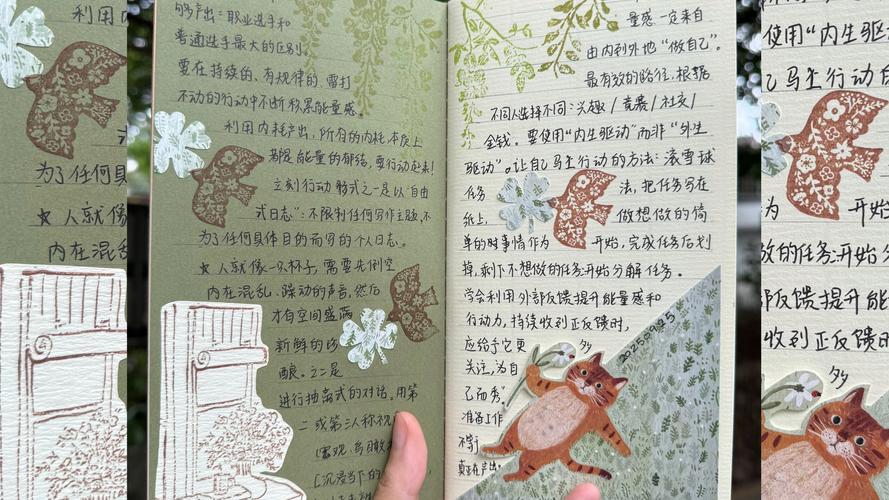 够产出：职业选手和
普通选手最大的区别。
要在持续的、有规律的、雷打
不动的行动中不断积累能量感。
利用内耗产出，所有的内耗，本质上
都是能量的郁结，要行动起来！
立刻行动 形式之一是以“自由
式日志”：不限制任何写作主题，不
为了任何具体目的而写的个人日志。
★ 人就像一只杯子，需要先倒空
内在混乱、躁动的声音，然后
才有空间盛满
新鲜的
酿。之二是
进行抽离式的对话，用第
二或第三人称视
[沉浸当下的
量感一定来自
由内到外地“做自己”。
最有效的路径，根据
不同人选择不同：兴趣/竞赛/社交/
金钱。要使用“内生驱动”而非“外生
驱动”。让自己马上行动的方法：滚雪球
任务 法，把任务写在
纸上， 做想做的简
单的时事情作为 开始，完成任务后划
掉，剩下不想做的任务开始分解任务。
学会利用外部反馈提升能量感和
行动力，持续收到正反馈时，
应给予它更 多
关注，为自
己而秀。
准备工作
不等于
真正在产出。
20250925
利用内
为了任何具
★ 人就像
内在混乱
使用“内生驱
己马上行动的
为 开始
故的任务开始分
部反馈提升能
收到正反馈时
多